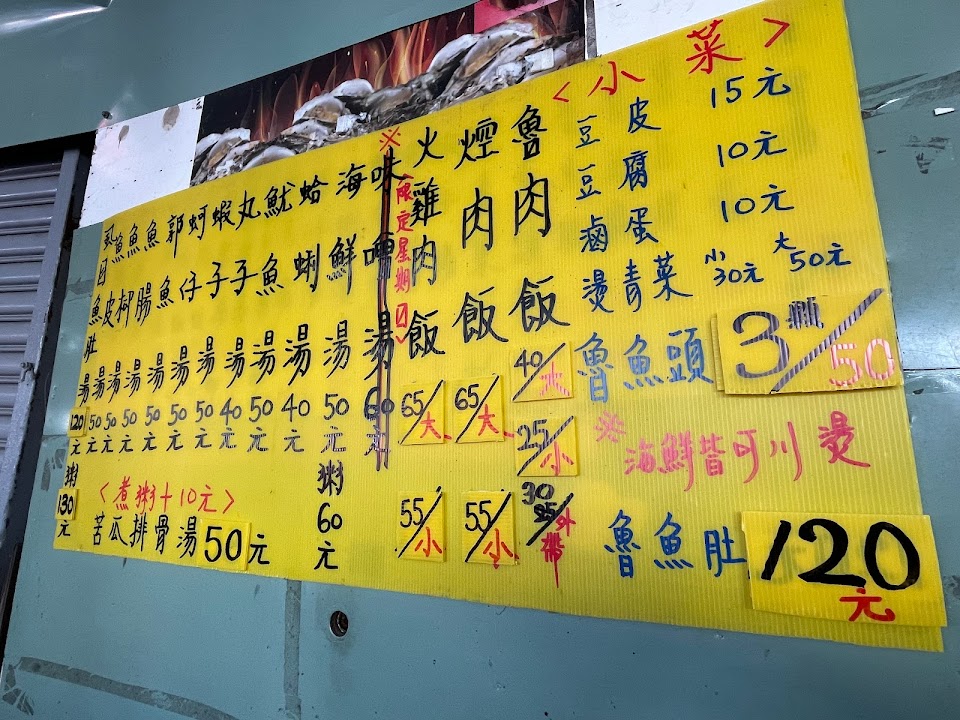 <小菜>
豆皮 15元
豆腐 10元
滷蛋 10元
燙青菜 小30元 大50元
魯魚頭 50
※海鮮皆可川燙
魯魚肚 120元
魯肉飯 40/大 25/小 30 25/外帶
煙肉飯 65/大 55/小
火雞肉飯 65/大 55/小
※限定星期日
味噌湯 60元
海鮮湯 50元 粥60元
蛤蜊湯 40元
魷魚湯 50元
丸子湯 40元
蝦子湯 50元
蚵仔湯 50元
郭魚湯 50元
魚腸湯 50元
魚湯 50元
魚皮湯 50元
虱目魚肚湯 120元 粥130元
<煮粥+10元>
苦瓜排骨湯50元